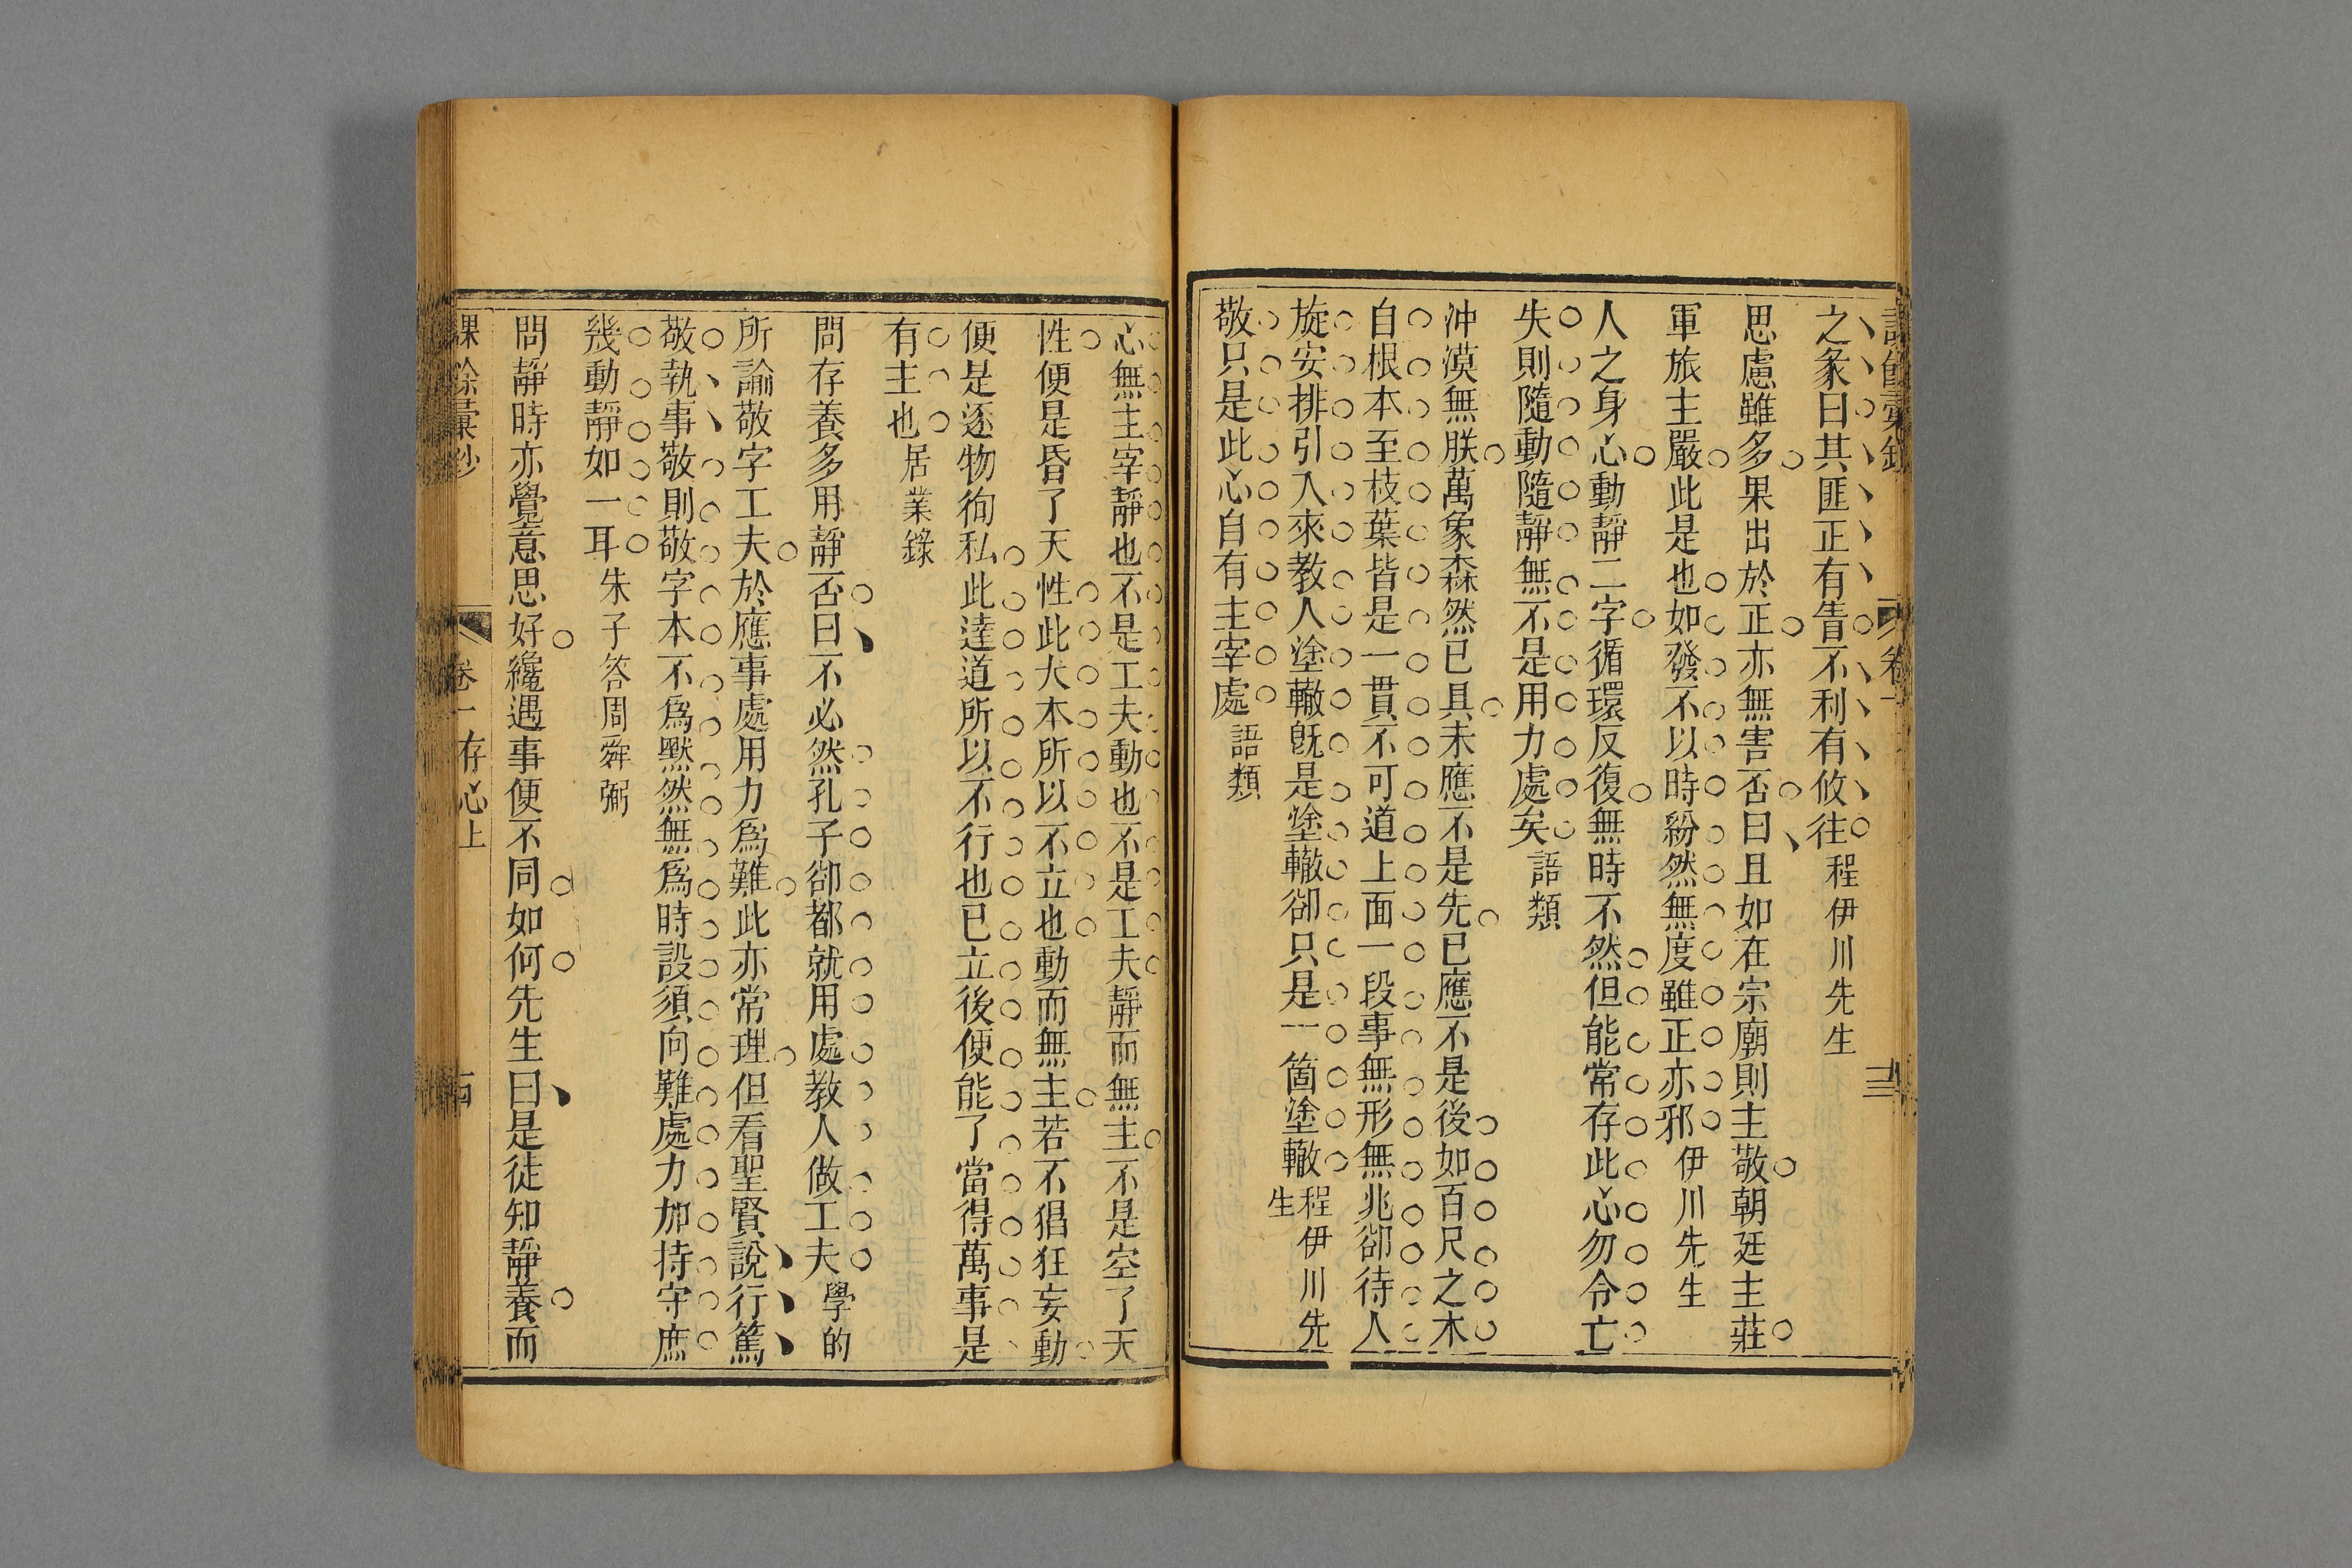 之彖曰其匪正有眚不利有攸往程伊川先生
思慮雖多果出於正亦無害否曰且如在宗廟則主敬朝廷主莊
軍旅主嚴此是也如發不以時紛然無度雖正亦邪伊川先生
人之身心動靜二字循環反復無時不然但能常存此心勿令亡
失則隨動隨靜無不是用力處矣語類
沖漠無朕萬象森然已具未應不是先已應不是後如百尺之木
自根本至枝葉皆是一貫不可道上面一段事無形無兆卻待人
旋安排引入來教人塗轍旣是塗轍卻只是一箇塗轍程伊川先生
敬只是此心自有主宰處語類
心無主宰靜也不是工夫動也不是工夫靜而無主不是空了天
性便是昏了天性此大本所以不立也動而無主若不猖狂妄動
便是逐物徇私此達道所以不行也已立後便能了當得萬事是
有主也居業錄
問存養多用靜否曰不必然孔子卻都就用處教人做工夫學的
所諭敬字工夫於應事處用力爲難此亦常理但看聖賢說行篤
敬執事敬則敬字本不爲默然無爲時設須向難處力加持守庶
幾動靜如一耳朱子答周舜弼
問靜時亦覺意思好纔遇事便不同如何先生曰是徒知靜養而
課餘彙鈔 卷一存心上